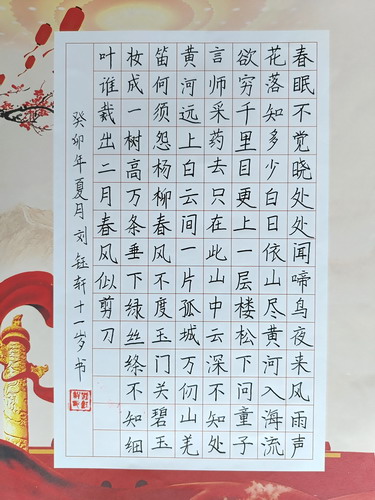 春眠不觉晓处处闻啼鸟夜来风雨声
花落知多少白日依山尽黄河入海流
欲穷千里目更上一层楼松下问童子
言师采药去只在此山中云深不知处
黄河远上白云间一片孤城万仞山羌
笛何须怨杨柳春风不度玉门关碧玉
妆成一树高万条垂下绿丝绦不知细
叶谁裁出二月春风似剪刀
癸卯年夏月刘钰轩十一岁书